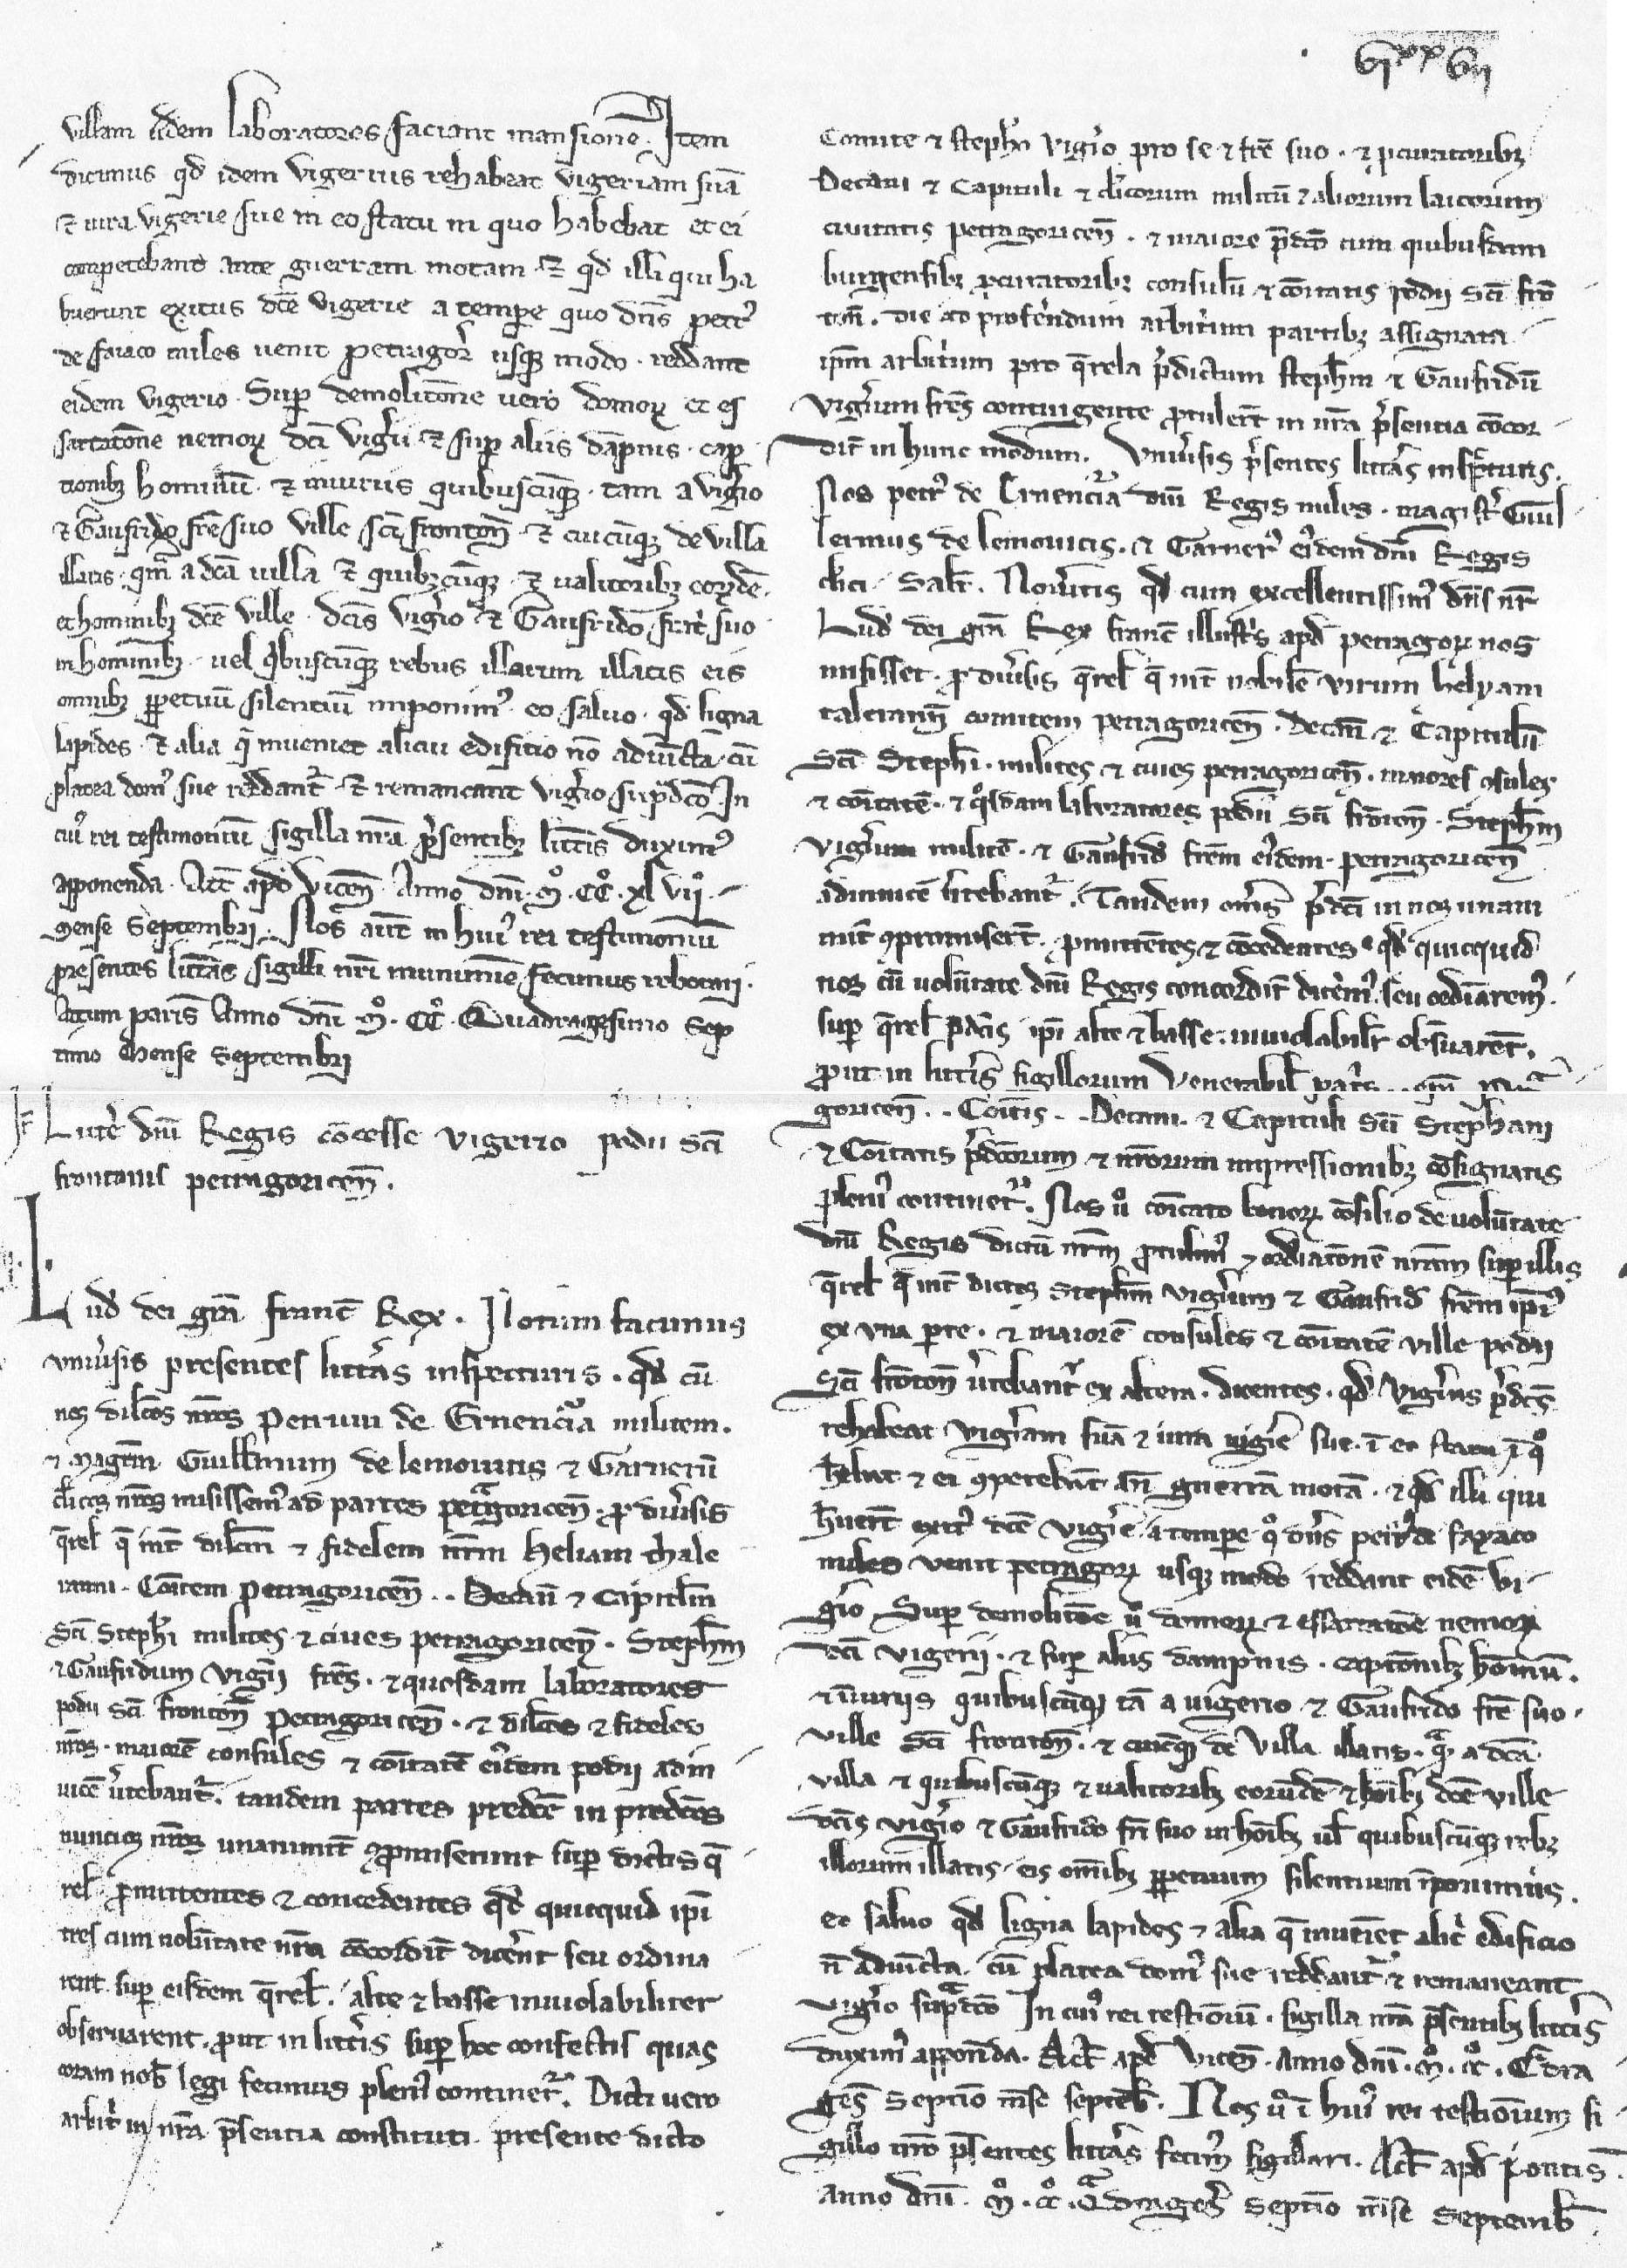 villam iidem laboratores faciant mansione. Item
dicimus qd idem vigerius rehabeat vigeriam suā
& iura vigerie sue in eo statu in quo habebat et ei
competebant ante guerram motam & qd illi qui ha
buerunt exitus dcē vigerie a tempore quo dns petr9
de faiaco miles uenit petragor usqz modo reddant
eidem vigerio. Sup demolitōne uero domoꝝ et es
sartatōne nemoꝝ dci vigerii & sup aliis dāpnis. cap
tionibz hominū & iniuriis quibuscūqz. tam a vigerio
& Gaufrido fre suo ville sci fronton & cuicūqz de villa
illatis. qm a dcā uilla & quibzcūqz & ualitoribz eoꝝdē.
et hominibz dcē ville. dcis vigerio & Gaufrido frat suo
in hominibz. uel qbuscūqz rebus illorum illatis eis
omnibz ppetuū silentiū imponim9. eo saluo. qd ligna
lapides & alia q inueniet alicui edificio nō adiuncta. cū
platea dom9 sue reddant & remaneant vigerio supdco In
cui9 rei testimoniū sigilla nra psentibz littis duxim9
apponenda. Act apd Vicen. Anno dni. m°. cc°. xl vii°.
mense Septembri. Nos aut in hui9 rei testimonium
presentes litteras sigilli nri munimine fecimus roborari.
Actum paris Anno dni m°. cc°. Quadragesimo Sep
timo Mense Septembri
Littere dni Regis cōcesse vigerio podii sci
frontonis petragoricen.
Lud dei gra franc Rex. Notum facimus
vniuersis presentes litteras inspecturis. qd cū
nos dilcos nros Petrum de Ernencia militem.
& Magrm Guillmum de lemouicis & Garnerū
clicos nros misissem9 ad partes petragoricen. pro diuersis
qrel q int dilcm & fidelem nrm heliam thale
ranni. Comitem petragoricen.. Decanū & Capitlm
Sci Stephi milites & ciues petragoricen. Stephm
& Gaufridum vigerii fres. & quosdam laboratores
podii sci fronton petragoricen. & dilcos & fideles
nros. maiorē consules & cōitatē eiusdem podii adin
uicē vtebant. tandem partes predcē in predcos
nuncios nros unanimit cpromiserunt sup dictis q
rel promittentes & concedentes qd quicquid ipi
tres cum uolūtate nra cōcordit dicerent seu ordina
rent sup eisdem qrel. alte & basse inuiolabiliter
obseruarent. prout in litteris sup hoc confectis quas
coram nob legi fecimus pleni9 continet. Dicti uero
arbitri in nra psentia constituti presente dicto
Comite & stepho vigerio pro se & fre suo. & pcuratoribz
Decani & Capituli & clicorum militū & aliorum laicorum
ciuitatis petragoricen. & maiore pdco cum quibusdam
burgensibz pcuratoribz consulū & cōitatis podii sci fro
ton. die ad proferendum arbitrium partibz assignata
ipm arbitrium pro qrela pdictum stephm & Gaufridū
vigerium fres contingente ptulert in nra psentia cōcor
dit in hunc modum. Vniuersis psentes litteras inspecturis.
Nos petr9 de Ernencia dni Regis miles. magist Guil
lermus de lemouicis. & Garner9 eiusdem dni Regis
clici. Salt. Noueritis qd cum excellentissim9 dns nr
Lud dei gra Rex franc illustris apd petragoꝝ nos
misisset. pro diuersis qrel q int nobilē virum helyam
talerann comitem petragoricen. Decan & Capitulū
Sci Stephi. milites & ciues petragoricen. maiores cōsules
& cōitatē. & qosdam laboratores podii Sci fronton. Stephm
vigerium militē. & Gaufrid frem eiusdem petragoricen
adinuicē vtebant. Tandem oms pdci in nos unani
mit cpromisert. pmittētes & cōcedentes qd quicquid
nos cū uolūtate dni Regis concordit dicerem9 seu ordiarem9.
sup qrel pdcis ipi alte & basse. inuiolabilit obseruarent.
Prout in litteris sigillorum Venerabil patris
goricen.. Comitis.. Decani. & Capituli Sci Stephani
& Cōitatis pdcorum & nrorum impressionibz cōsignatis
pleni9 continet. Nos uo cōicato bonoꝝ cōsilio de uolūtate
dni Regis dictū nrm ptulim9 & ordiatōnē nram super illis
qrel q int dictos Stephm vigerium & Gaufrid frem ipi9
ex vna pte. & maiorē consules & cōitatē ville podii
Sci fronton vtebant ex altera. dicentes. qd vigerius pdcs
rehabeat vigeriam suā & iura vigerie sue. ī eo statu ī qo
hebat & ei cpetebant an guerrā motā. & qd illi qui
huert exit9 dcē vigerie. a tempore qo dns petr9 de sayaco
miles venit petragoꝝ usqz modo reddant eidē vi
gerio Sup demolitōe uo domoꝝ & essartatōe nemoꝝ
dci vigerii. & sup aliis dampnis. captōnibz hōinū.
& iniuriis quibuscūqz tā a vigerio & Gaufrido fre suo.
ville Sci fronton. & cuicūqz de villa illatis. qm a dcā.
villa & quibuscūqz & ualitoribz eorūdē & hōibz dcē ville
dcis vigerio & Gaufrido fri suo in hōibz ul quibuscūqz rebz
illorum illatis. eis omibz ppetuum silentium īponimus.
eo saluo qd ligna lapides & alia q inueniet alic edificio
n adiūcta. cū platea dom9 sue reddant & remaneant
vigerio supdco In cui9 rei testioniū. sigilla nra psentibz litteris
duxim9 apponēda. Act apd Vicen. anno dni. m°. cc°. Qdra
ges Septio mēse septeb. Nos uo ī hui9 rei testionium si
gillo nro psentes litteras fecim9 sigillari. Act apd Pontis.
anno dni. m°. cc°. Qdrages septio mēse Septemb.